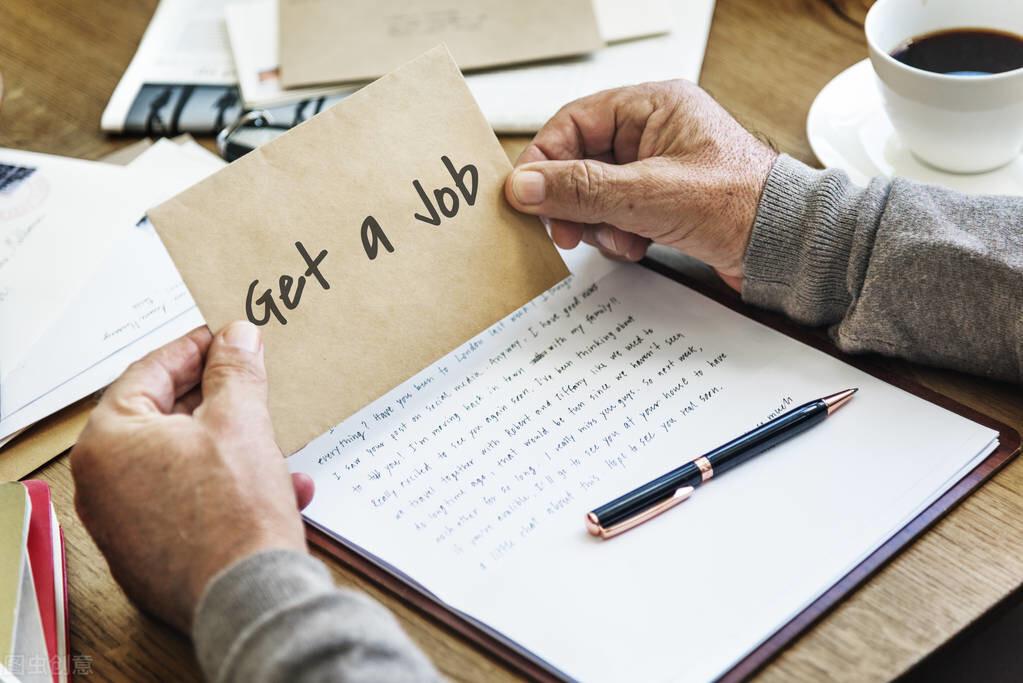 Get a Job
everything? Have you been to London last week?
I saw your post on social media. Anyway, I have good news
to tell you! I'm moving back in town with my family!!
Really excited to see you again soon. I've been thinking about
travel together with Robert and Tiffany like we used to
longtime ago. that would be fun since we haven't seen
each other for so long. I really miss you guys. so next week,
if you're avalible. I'll go to see you at your house to have
a little chat about this. Hope to see you real soon.
much
图虫创意